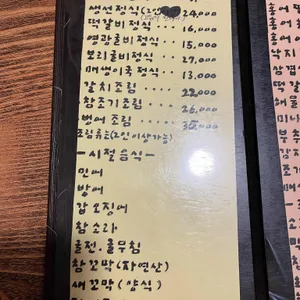 생선정식(2인 24,000
떡갈비정식·· 16,000
영광굴비정식·· 15,000
보리굴비정식·· 27,000
매생이국정식·· 13,000
갈치조림···· 22,000
참조기조림··· 26,000
병어조림····
조림류는(2인이상가능)
-시절음식-
민어
방어
갑오징어
참소라
굴전.굴무침
참꼬막(자연산)
새꼬막(양식)